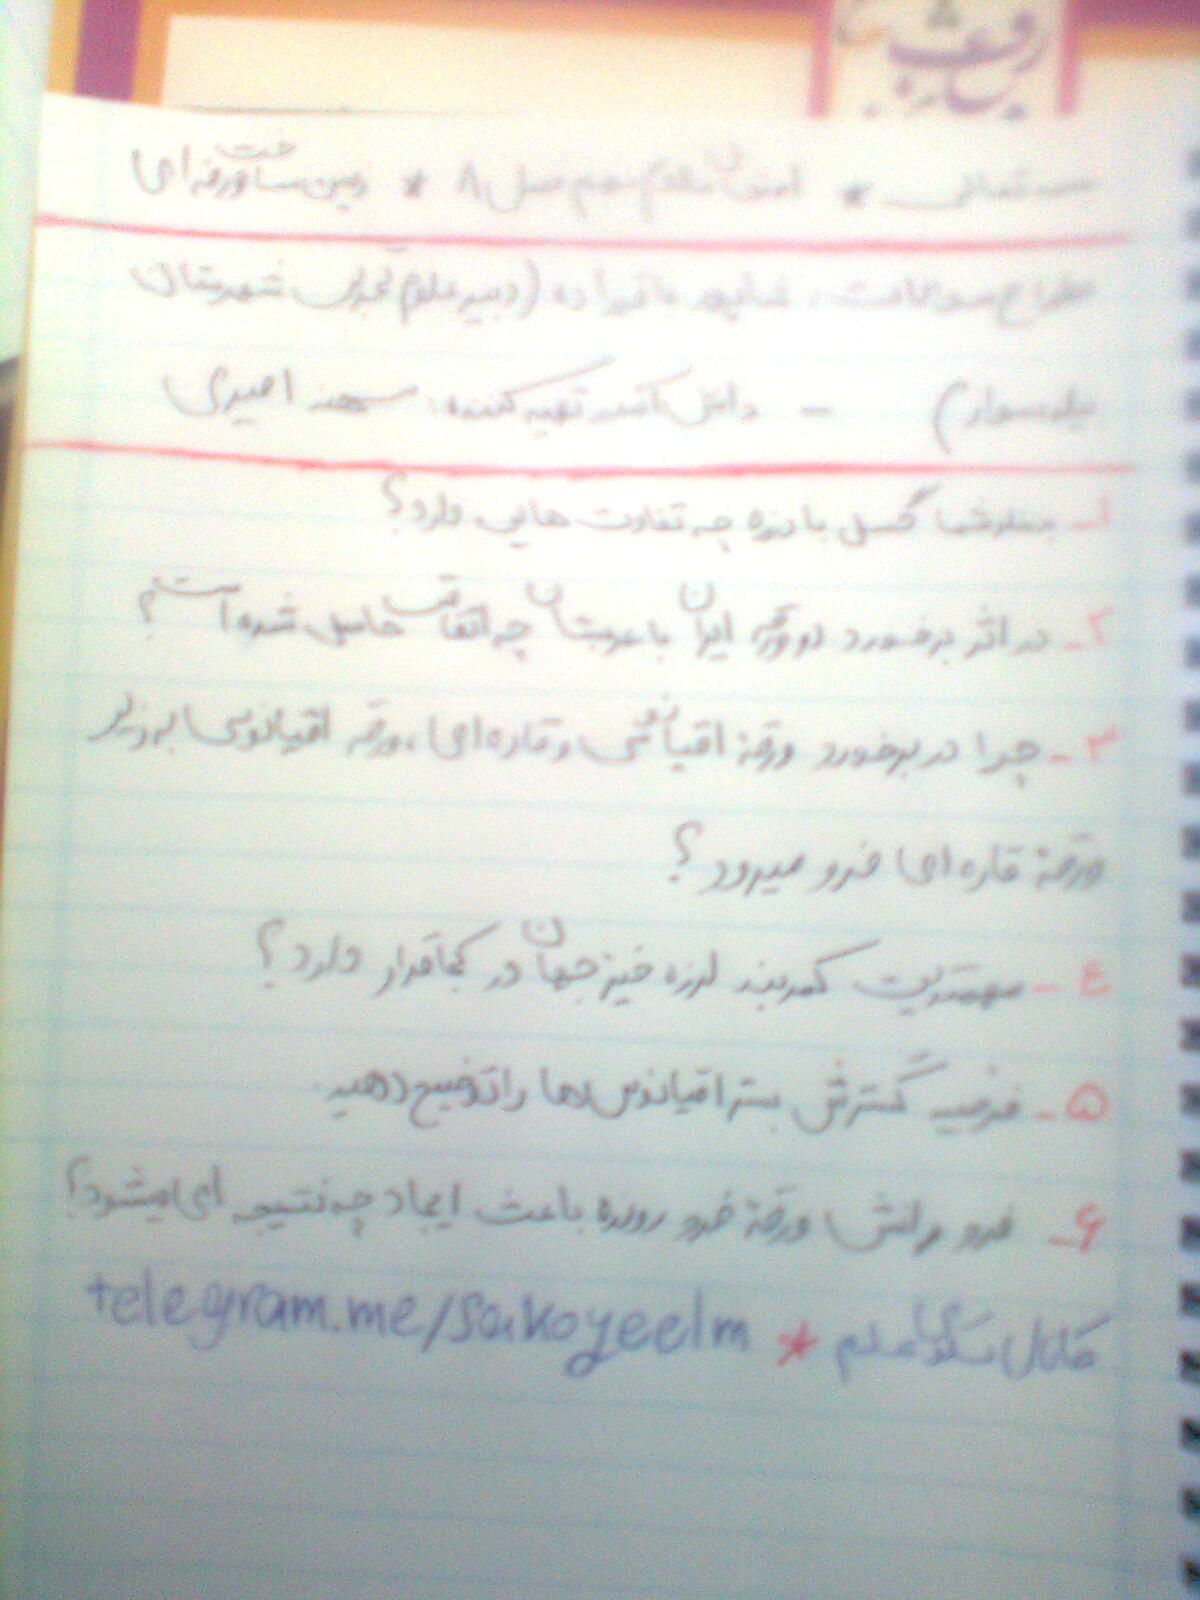 بسمه تعالی * امتحان علوم نهم فصل ۸ * زمین ساخت ورقه ای
طراح سوالات: شاپور باقرزاده (دبیر علوم تجربی شهرستان
بیله سوار) - دانش آموز تهیه کننده: سهند امیری
۱- بنظر شما گسل با درزه چه تفاوت هایی دارد؟
۲- در اثر برخورد دو ورقه ایران با عربستان چه اتفاقات حاصل شده است؟
۳- چرا در برخورد ورقهٔ اقیانوسی و قاره ای، ورقه اقیانوسی به زیر
ورقهٔ قاره ای فرو میرود؟
۴- مهمترین کمربند لرزه خیز جهان در کجا قرار دارد؟
۵- فرضیه گسترش بستر اقیانوس ها را توضیح دهید.
۶- فرو رانش ورقهٔ فرو رونده باعث ایجاد چه نتیجه ای میشود؟
کانال سکوی علم * telegram.me/sakoyeelm